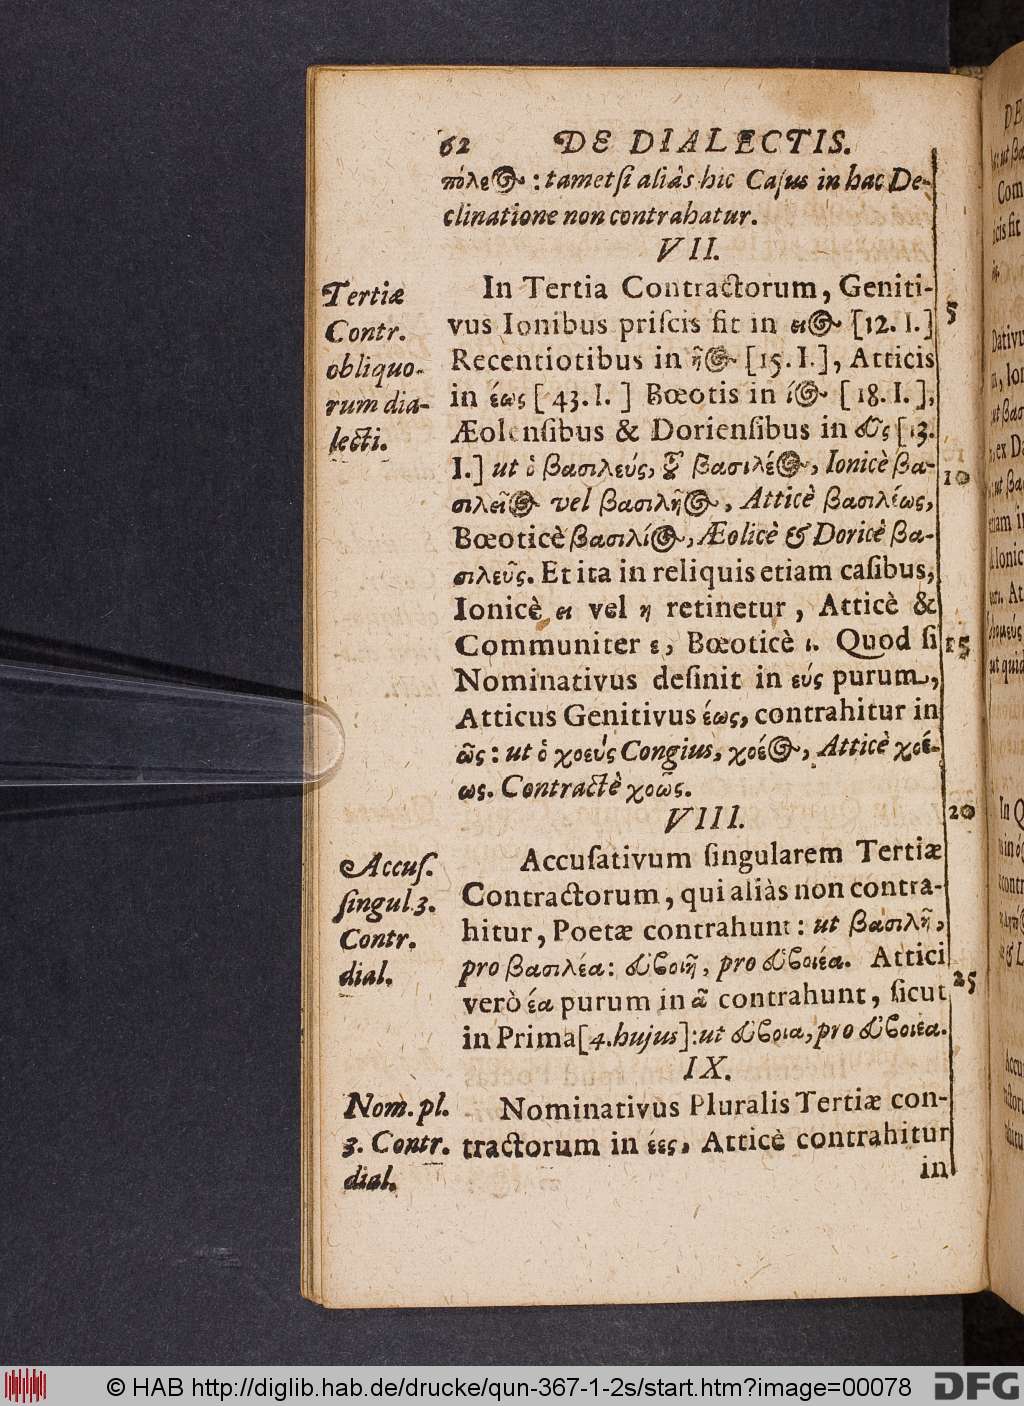 62 DE DIALECTIS.
πόλεος : tametsi aliàs hic Casus in hac De-
clinatione non contrahatur.
VII.
Tertiæ
Contr.
obliquo-
rum dia-
lecti.
In Tertia Contractorum, Geniti-
vus Ionibus priscis fit in ειος [12. I.]
Recentiotibus in ῆος [15. I.], Atticis
in έως [43. I. ] Bœotis in ίος [18. I.],
Æolensibus & Doriensibus in εῦς [13.
I.] ut ὁ βασιλεύς, τοῦ βασιλέος, Ionicè βα-
σιλεῖος vel βασιλῆος, Atticè βασιλέως,
Bœoticè βασιλίος, Æolicè & Doricè βα-
σιλεῦς. Et ita in reliquis etiam casibus,
Ionicè ει vel η retinetur, Atticè &
Communiter ε, Bœoticè ι. Quod si
Nominativus desinit in εύς purum,
Atticus Genitivus έως, contrahitur in
ῶς : ut ὁ χοεύς Congius, χοέος, Atticè χοέ-
ως. Contractè χοῶς.
VIII.
Accus.
singul. 3.
Contr.
dial.
Accusativum singularem Tertiæ
Contractorum, qui aliàs non contra-
hitur, Poetæ contrahunt : ut βασιλῆ,
pro βασιλέα: εὐβοιῆ, pro εὐβοιέα. Attici
verò έα purum in ᾶ contrahunt, sicut
in Prima [4. hujus]: ut εὐβοια, pro εὐβοιέα.
IX.
Nom. pl.
3. Contr.
dial.
Nominativus Pluralis Tertiæ con-
tractorum in έες, Atticè contrahitur
in
5
10
15
20
25
© HAB http://diglib.hab.de/drucke/qun-367-1-2s/start.htm?image=00078
DFG